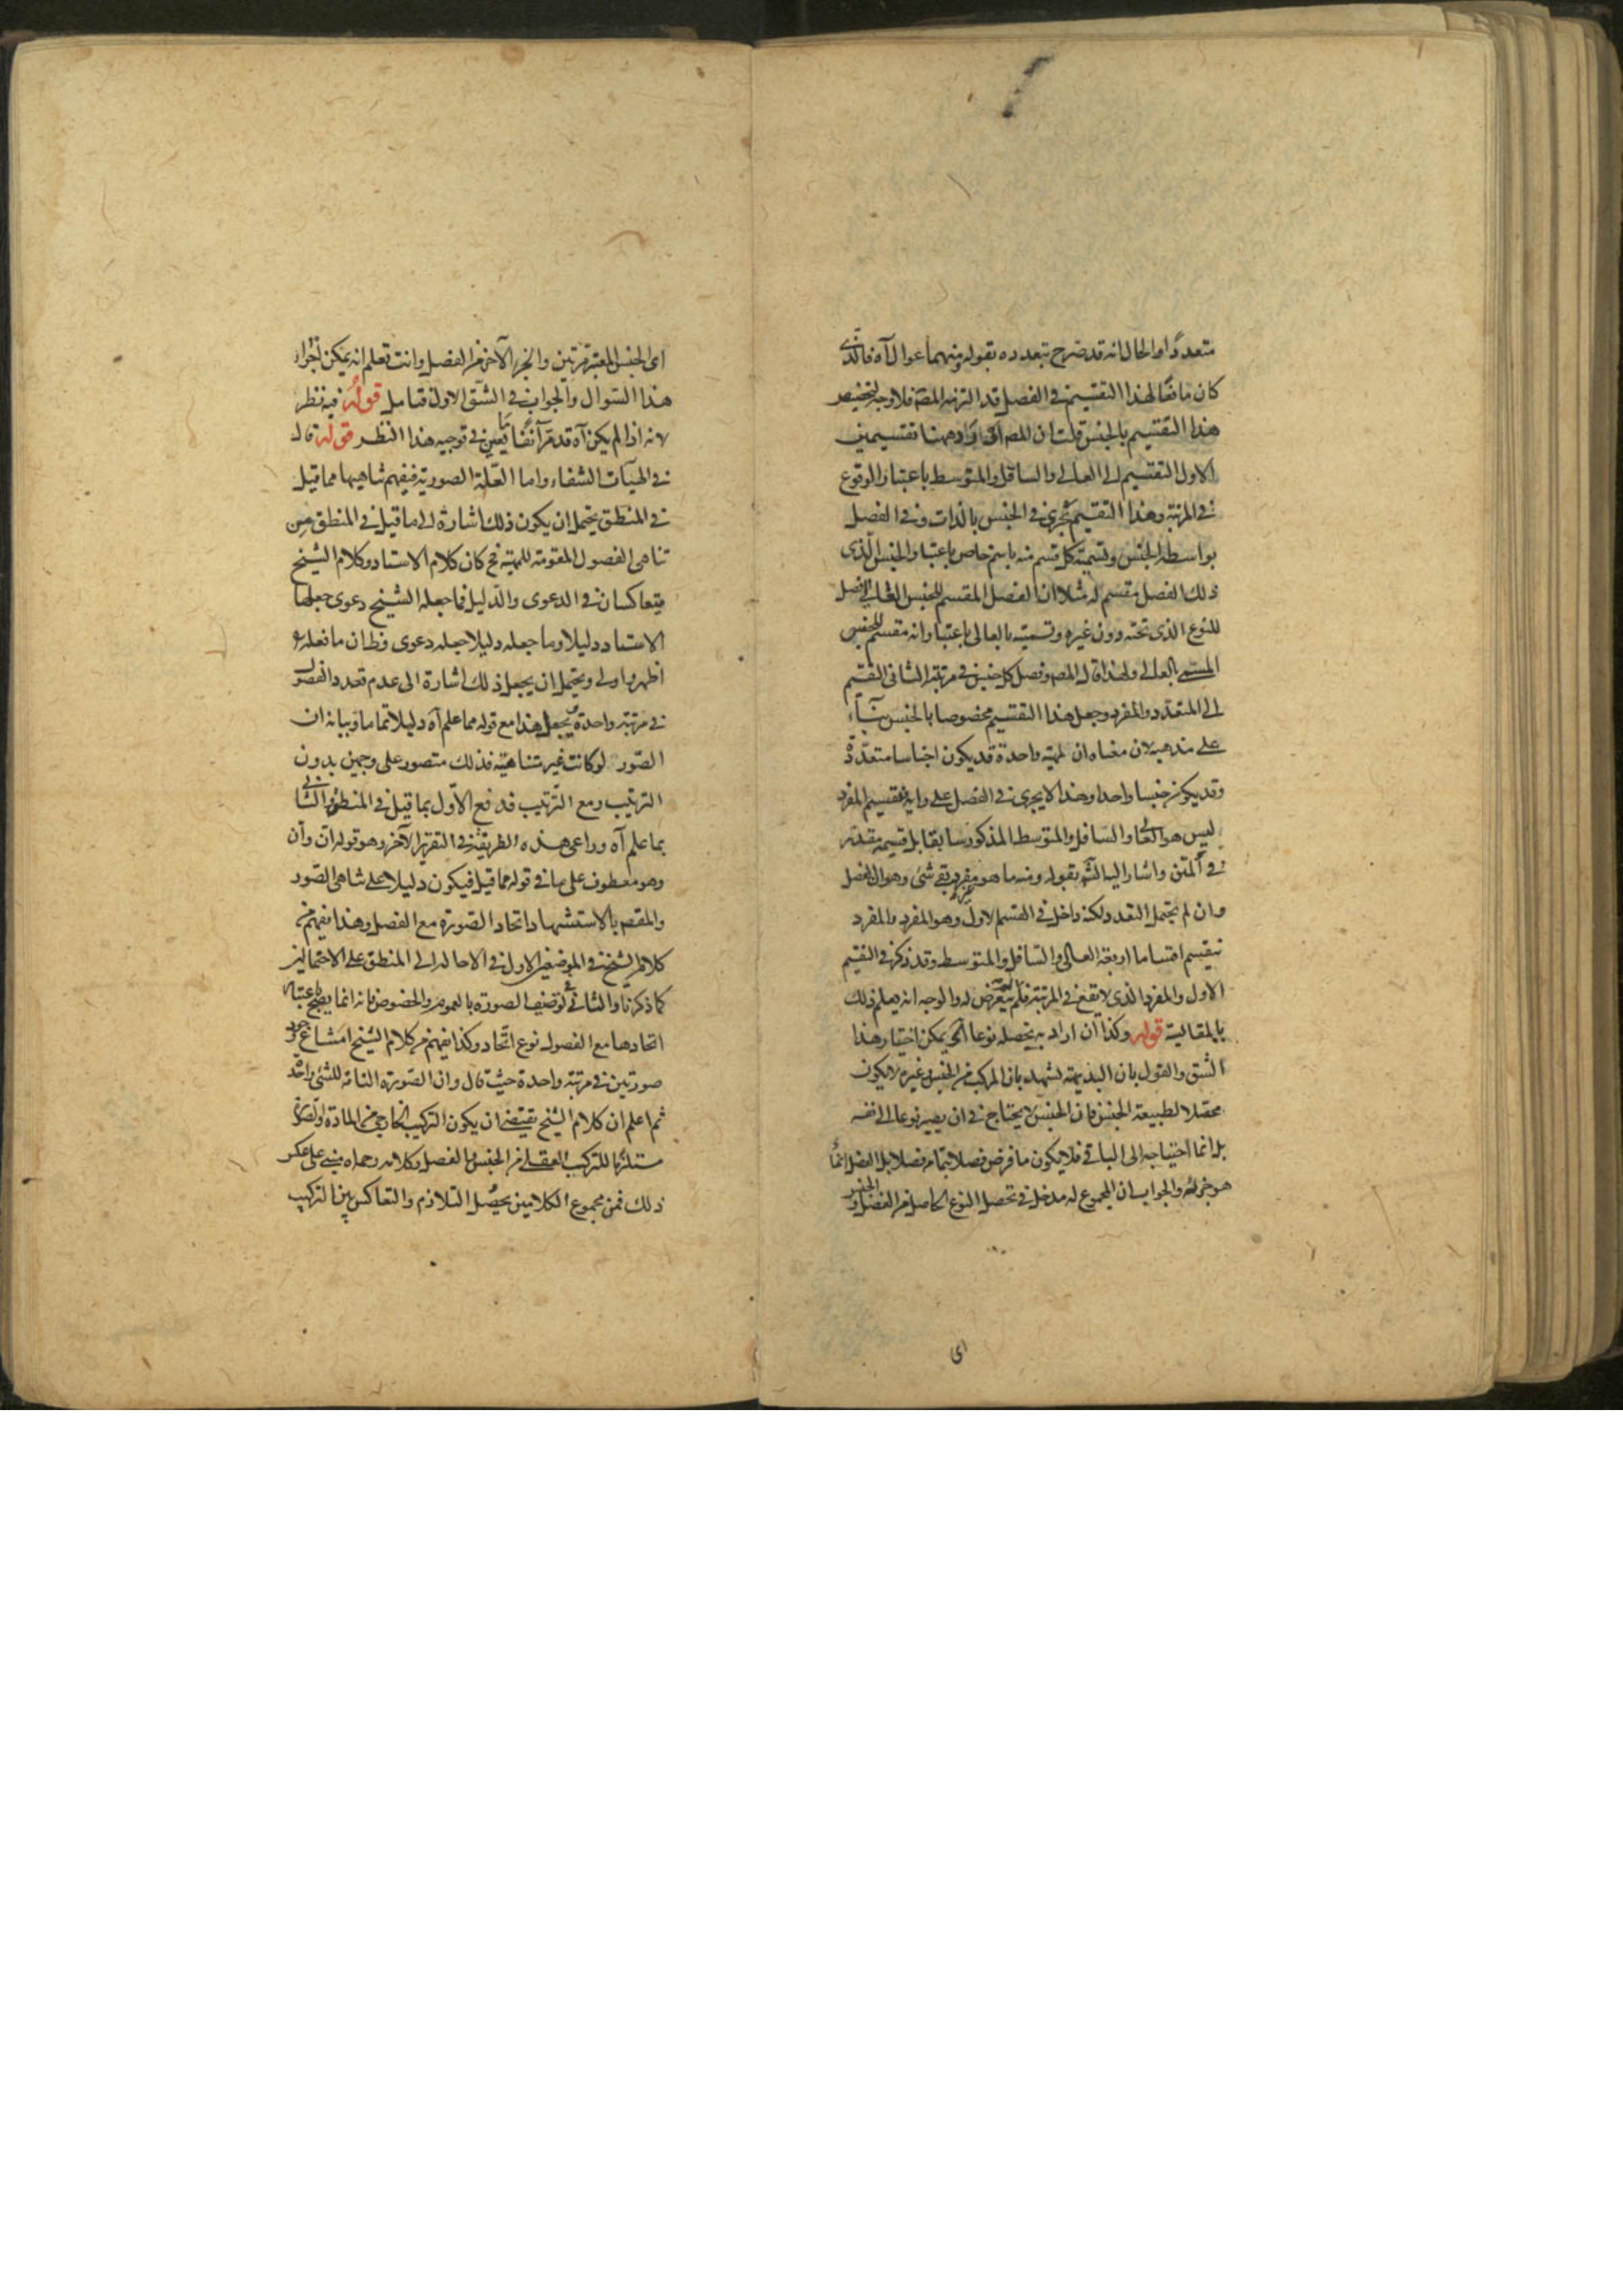 متعددا والحال انه قد صرح بتعدده بقوله ومنهما عوال آه فالذى
كان مانعا لهذا التقسيم فى الفصل قد التزمه المصه فلا وجه لتخصيص
هذا التقسيم بالجنس قلت ان المصه اراد ههنا تقسيمين
الاول التقسيم الى العالى والسافل والمتوسط باعتبار الوقوع
فى المرتبة وهذا التقسيم يجرى فى الجنس بالذات وفى الفصل
بواسطة الجنس وتسمية كل قسم منه باسم خاص باعتبار الجنس الذى
ذلك الفصل مقسم له مثلا ان الفصل المقسم للجنس العالى فصل
للنوع الذى تحته دون غيره وتسميته بالعالى باعتبار انه مقسم للجنس
المسمى بالعالى ولهذا قال المصه وفصل كل جنس فى مرتبته الثانى التقسيم
الى المتعدد والمفرد وجعل هذا التقسيم مخصوصا بالجنس بناء
على مذهبه لان معناه ان لمهية واحدة قد يكون اجناسا متعددة
وقد يكون جنسا واحدا وهذا لا يجرى فى الفصل على رايه فتقسيم المفرد
ليس هو العالى والسافل والمتوسط المذكور سابقا بل قسيمه مقدر
فى المتن واشار اليه الش بقوله ومنه ما هو مفرد بقى شئ وهو ان الفصل
وان لم يحتمل التعدد لكنه داخل فى القسم الاول وهو المفرد والمفرد
ينقسم اقساما اربعة العالى والسافل والمتوسط وقد ذكر فى التقسيم
الاول والمفرد الذى لا يقع فى المرتبة فلم يتعرض له والوجه انه يعلم ذلك
بالمقايسة قوله وكذا ان اراد به يحصله نوعا الخ يمكن اختيار هذا
الشق والقول بان البديهة تشهد بان المركب من الجنس وغيره لا يكون
محصلا لطبيعة الجنس فان الجنس لا يحتاج فى ان يصير نوعا الى نفسه
بل انما احتياجه الى الباقى فلا يكون ما فرض فصلا بتمامه فصلا بل الفصل انما
هو جزئه والجواب ان المجموع له مدخل فى تحصل النوع الحاصل من الفصل والجنس
اى
اى الجنس المعتبر مرتين والجزء الآخر من الفصل وانت تعلم انه يمكن اجراء
هذا السوال والجواب فى الشق الاول فتامل قوله فيه نظر
لانه اذا لم يكن آه قد مر آنفا ما يعين فى توجيه هذا النظر قوله قال
فى الهيات الشفاء واما العلة الصورية فيفهم تناهيها مما قيل
فى المنطق يحتمل ان يكون ذلك اشارة الى ما قيل فى المنطق من
تناهى الفصول المقومة للمهية فح كان كلام الاستاد وكلام الشيخ
متعاكسان فى الدعوى والدليل فما جعله الشيخ دعوى جعلها
الاستاد دليلا وما جعله دليلا جعله دعوى وظ ان ما فعله
اظهر واولى ويحتمل ان يجعل ذلك اشارة الى عدم تعدد الفصول
فى مرتبة واحدة ويجعل هذا مع قوله مما علم آه دليلا تماما وبيانه ان
الصور لو كانت غير متناهية فذلك متصور على وجهين بدون
الترتيب ومع الترتيب فدفع الاول بما قيل فى المنطق والثانى
بما علم آه وراعى هذه الطريقة فى التقرير الآخر وهو قوله ان وان
وهو معطوف على ما فى قوله مما قيل فيكون دليلا على تناهى الصور
والمقصه بالاستشهاد اتحاد الصورة مع الفصل وهذا يفهم من
كلام الشيخ فى الموضعين الاول فى الاحالة الى المنطق على الاحتمالين
كما ذكرنا والثانى فى توصيف الصورة بالعموم والخصوص فانه انما يصح باعتبار
اتحادها مع الفصول نوع اتحاد وكذا يفهم من كلام الشيخ امتناع وجود
صورتين فى مرتبة واحدة حيث قال وان الصورة التامة للشئ واحدة
ثم اعلم ان كلام الشيخ يقتضى ان يكون التركيب الخارجى من المادة والصورة
مستلزما للتركيب العقلى من الجنس والفصل وكلام رحمه الله مبنى على عكس
ذلك فمن مجموع الكلامين يحصل التلازم والتعاكس بين التركيب